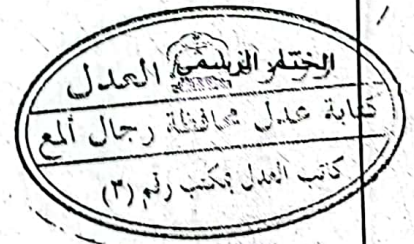 الختم الرسمي العدل
كتابة عدل محافظة رجال ألمع
كاتب العدل بمكتب رقم (٣)